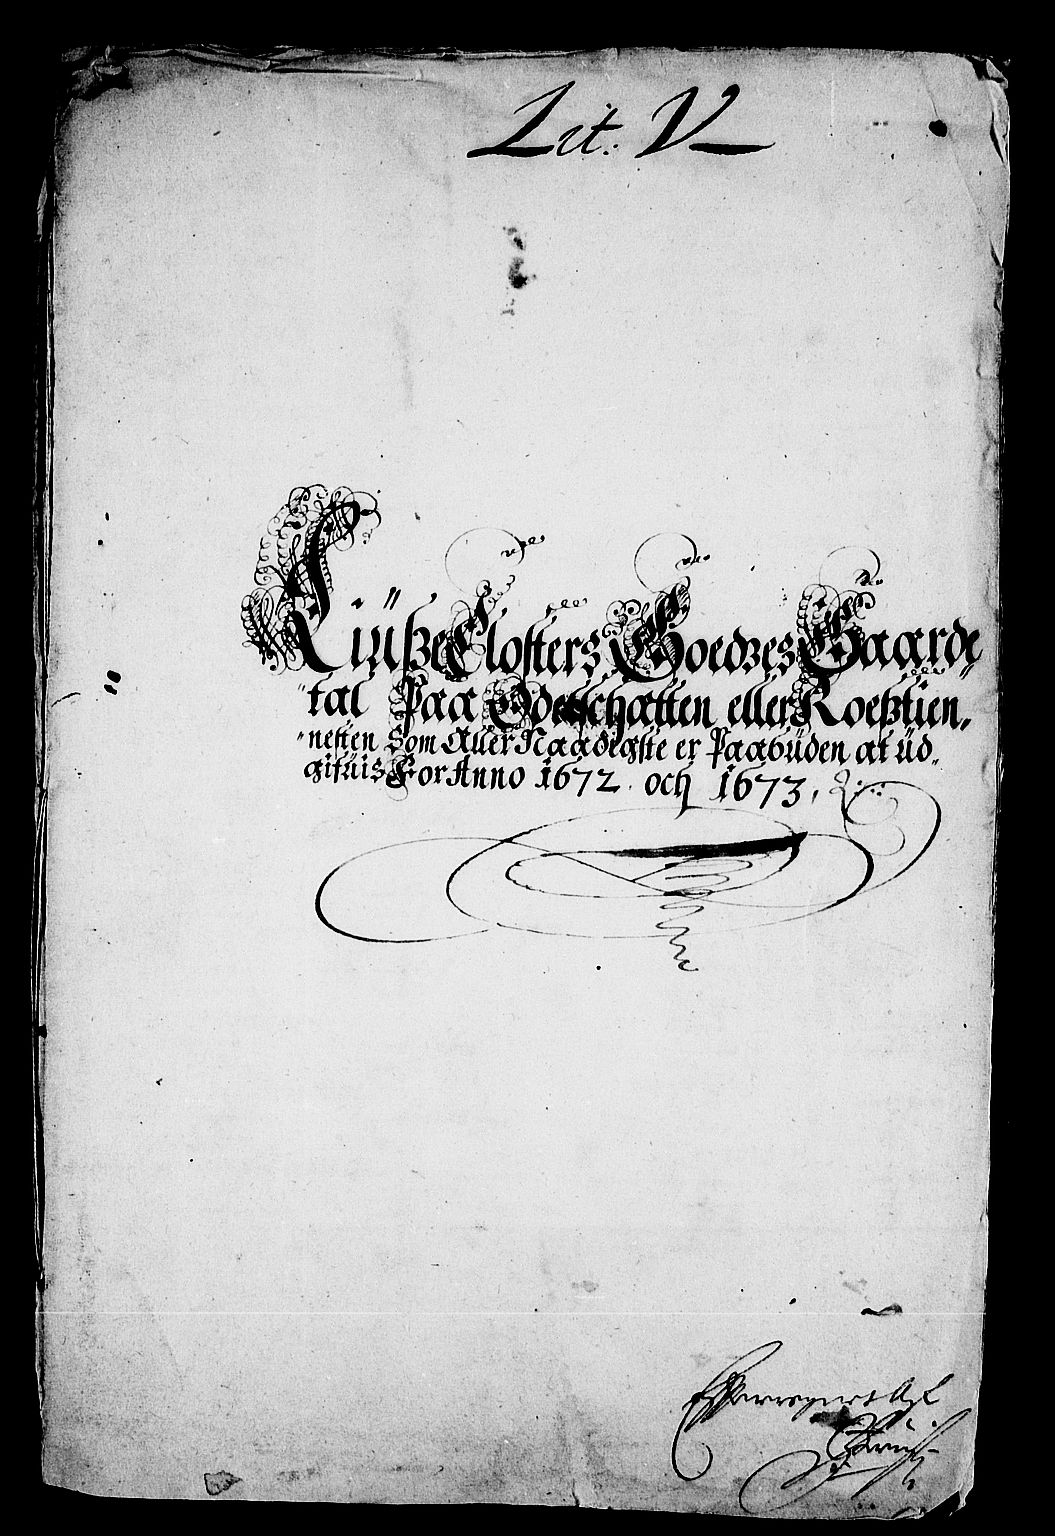 Lit: V
Liuſze Closters Goedzes Gaarde
tal Paa Odelschatten eller Roeſztien„
„nesten Som Aller Naadigste er Paabüden at üd„
gifuis For Anno 1672. och 1673,